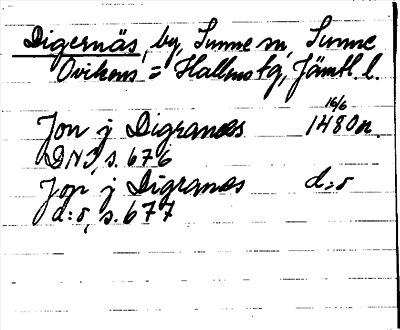 Digernäs, by, Sunne sn, Sunne
Ovikens = Hallens tg, Jämtl. l.
Jon j Digranes 16/6 1480 n.
DN I, s. 676
Jop j Digranes d:o
d:o, s. 677